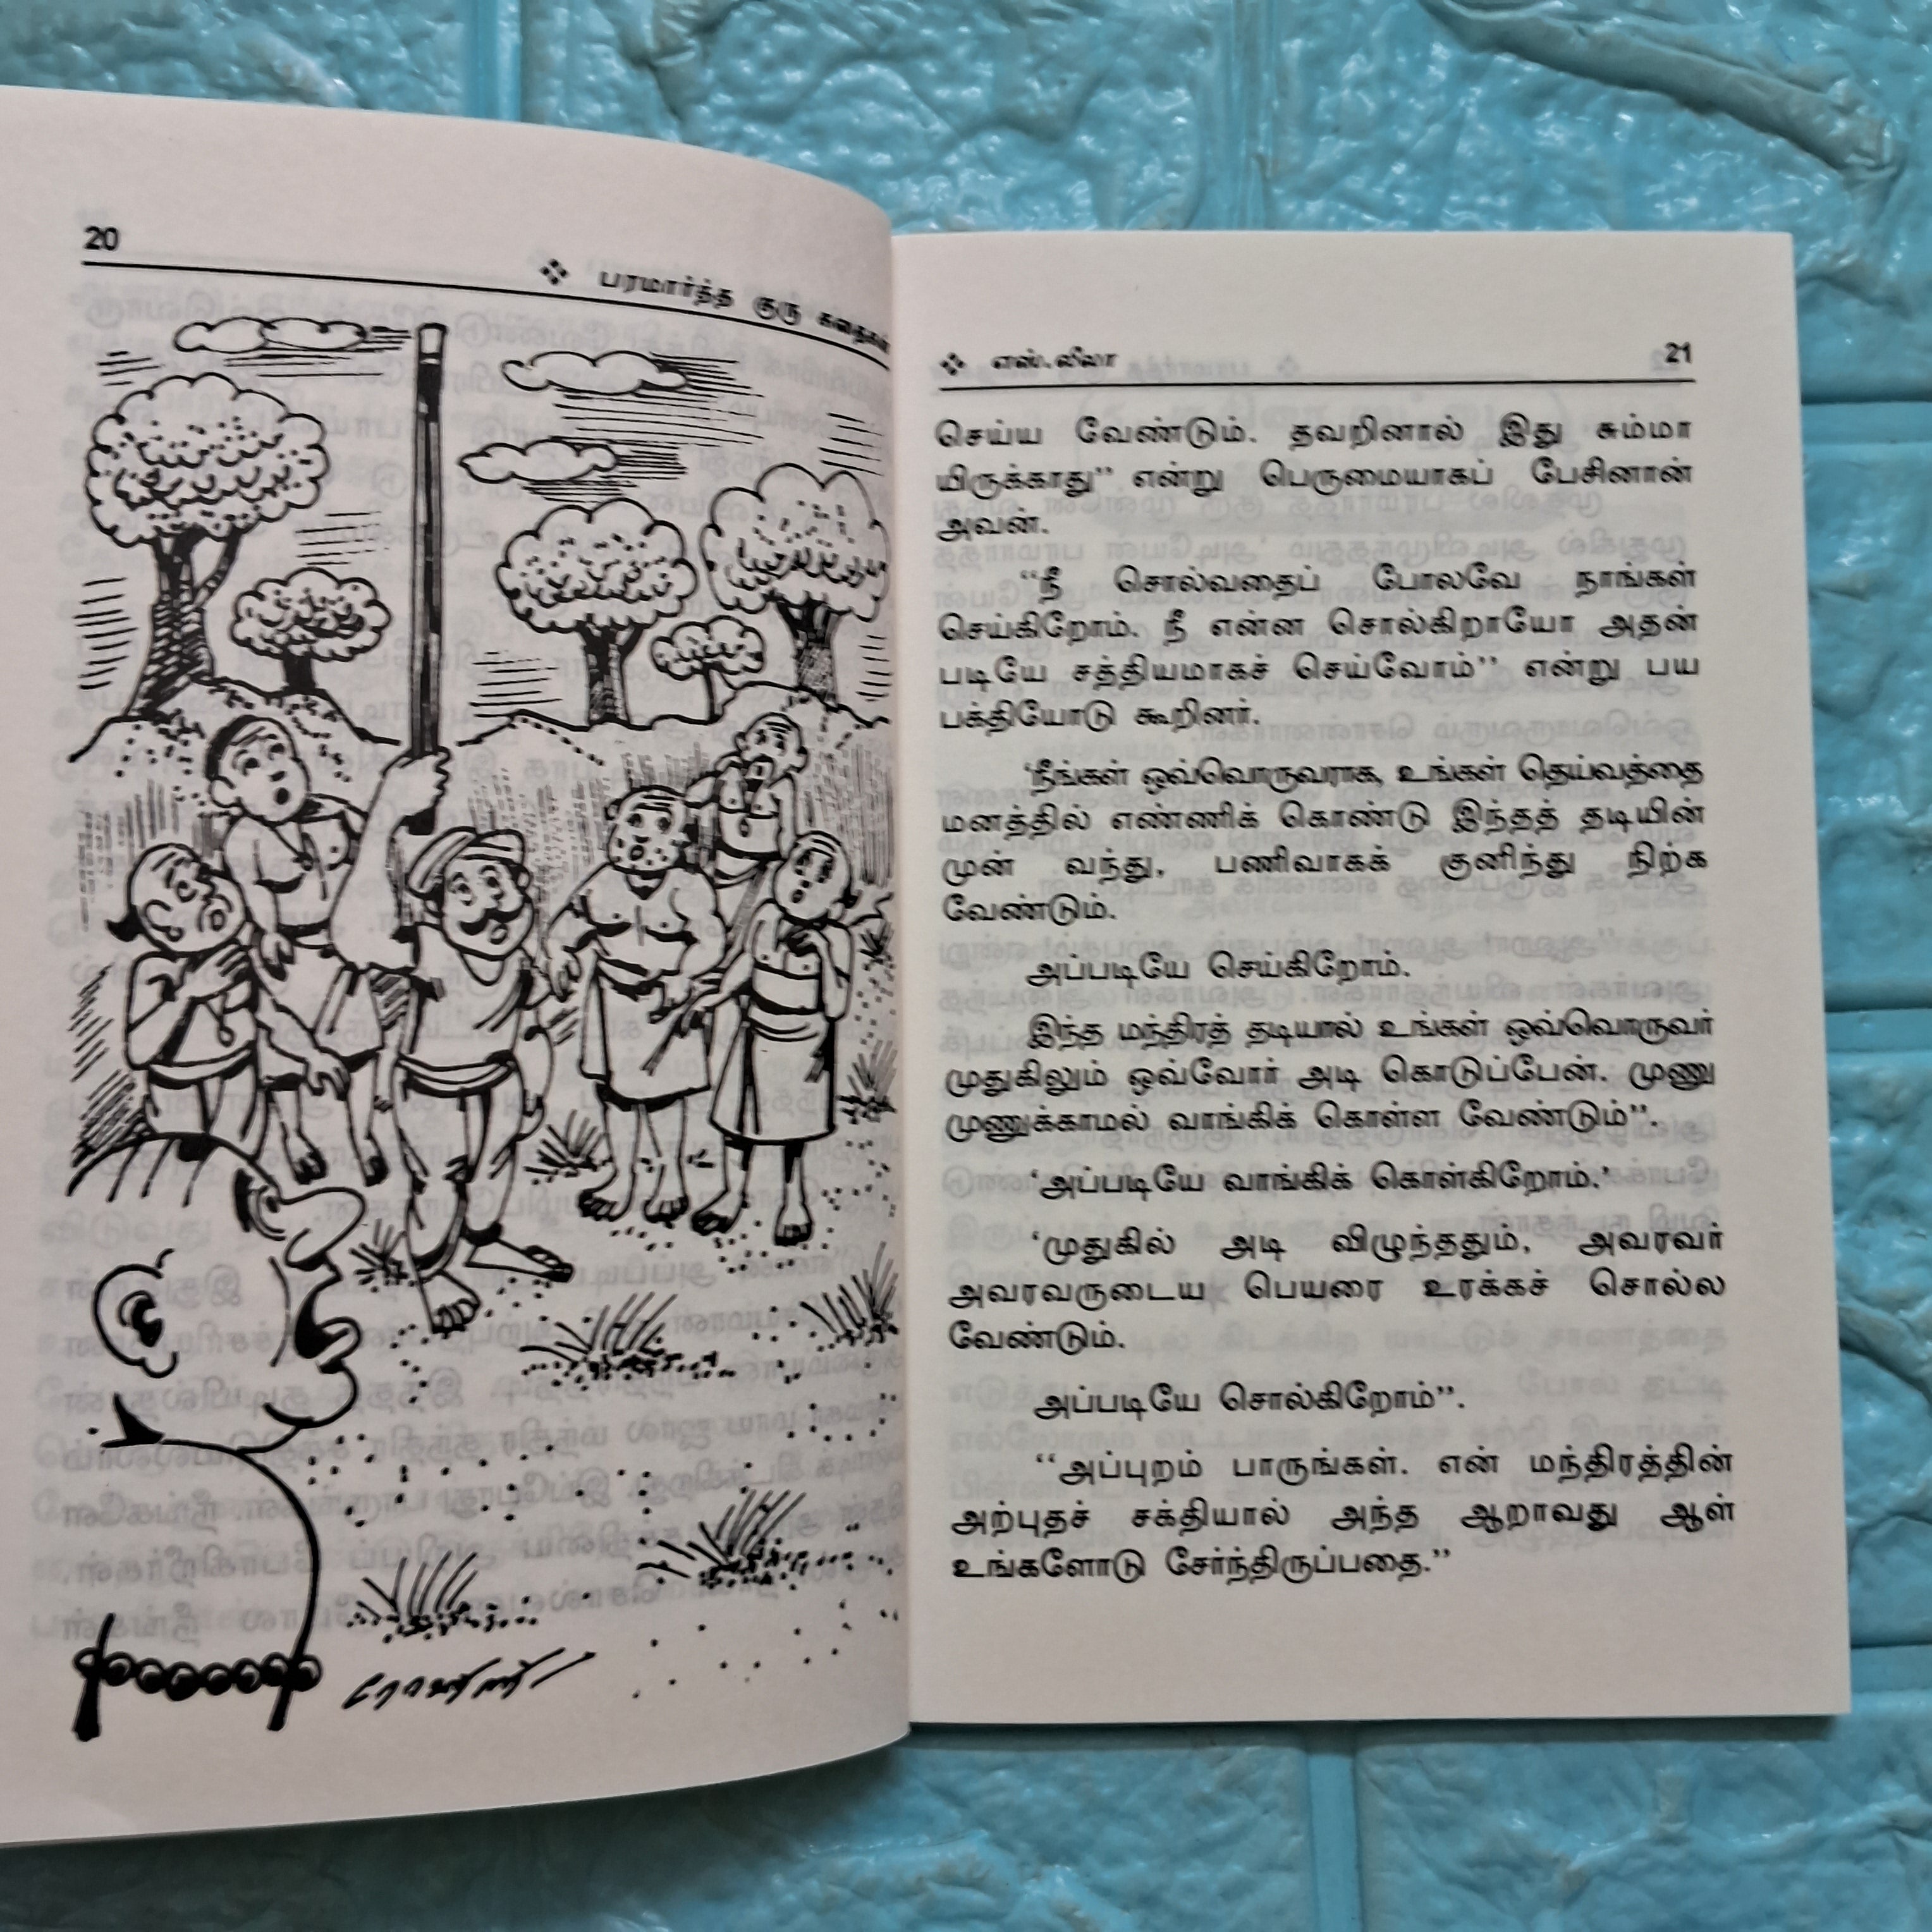 20
❖ பரமார்த்த குரு கதைகள்
❖ எஸ்.லீலா
21
செய்ய வேண்டும். தவறினால் இது சும்மா
யிருக்காது" என்று பெருமையாகப் பேசினான்
அவன்.
"நீ சொல்வதைப் போலவே நாங்கள்
செய்கிறோம். நீ என்ன சொல்கிறாயோ அதன்
படியே சத்தியமாகச் செய்வோம்" என்று பய
பக்தியோடு கூறினர்.
'நீங்கள் ஒவ்வொருவராக, உங்கள் தெய்வத்தை
மனத்தில் எண்ணிக் கொண்டு இந்தத் தடியின்
முன் வந்து, பணிவாகக் குனிந்து நிற்க
வேண்டும்.
அப்படியே செய்கிறோம்.
இந்த மந்திரத் தடியால் உங்கள் ஒவ்வொருவர்
முதுகிலும் ஒவ்வோர் அடி கொடுப்பேன். முணு
முணுக்காமல் வாங்கிக் கொள்ள வேண்டும்".
'அப்படியே வாங்கிக் கொள்கிறோம்.'
'முதுகில் அடி விழுந்ததும், அவரவர்
அவரவருடைய பெயரை உரக்கச் சொல்ல
வேண்டும்.
அப்படியே சொல்கிறோம்".
"அப்புறம் பாருங்கள். என் மந்திரத்தின்
அற்புதச் சக்தியால் அந்த ஆறாவது ஆள்
உங்களோடு சேர்ந்திருப்பதை."